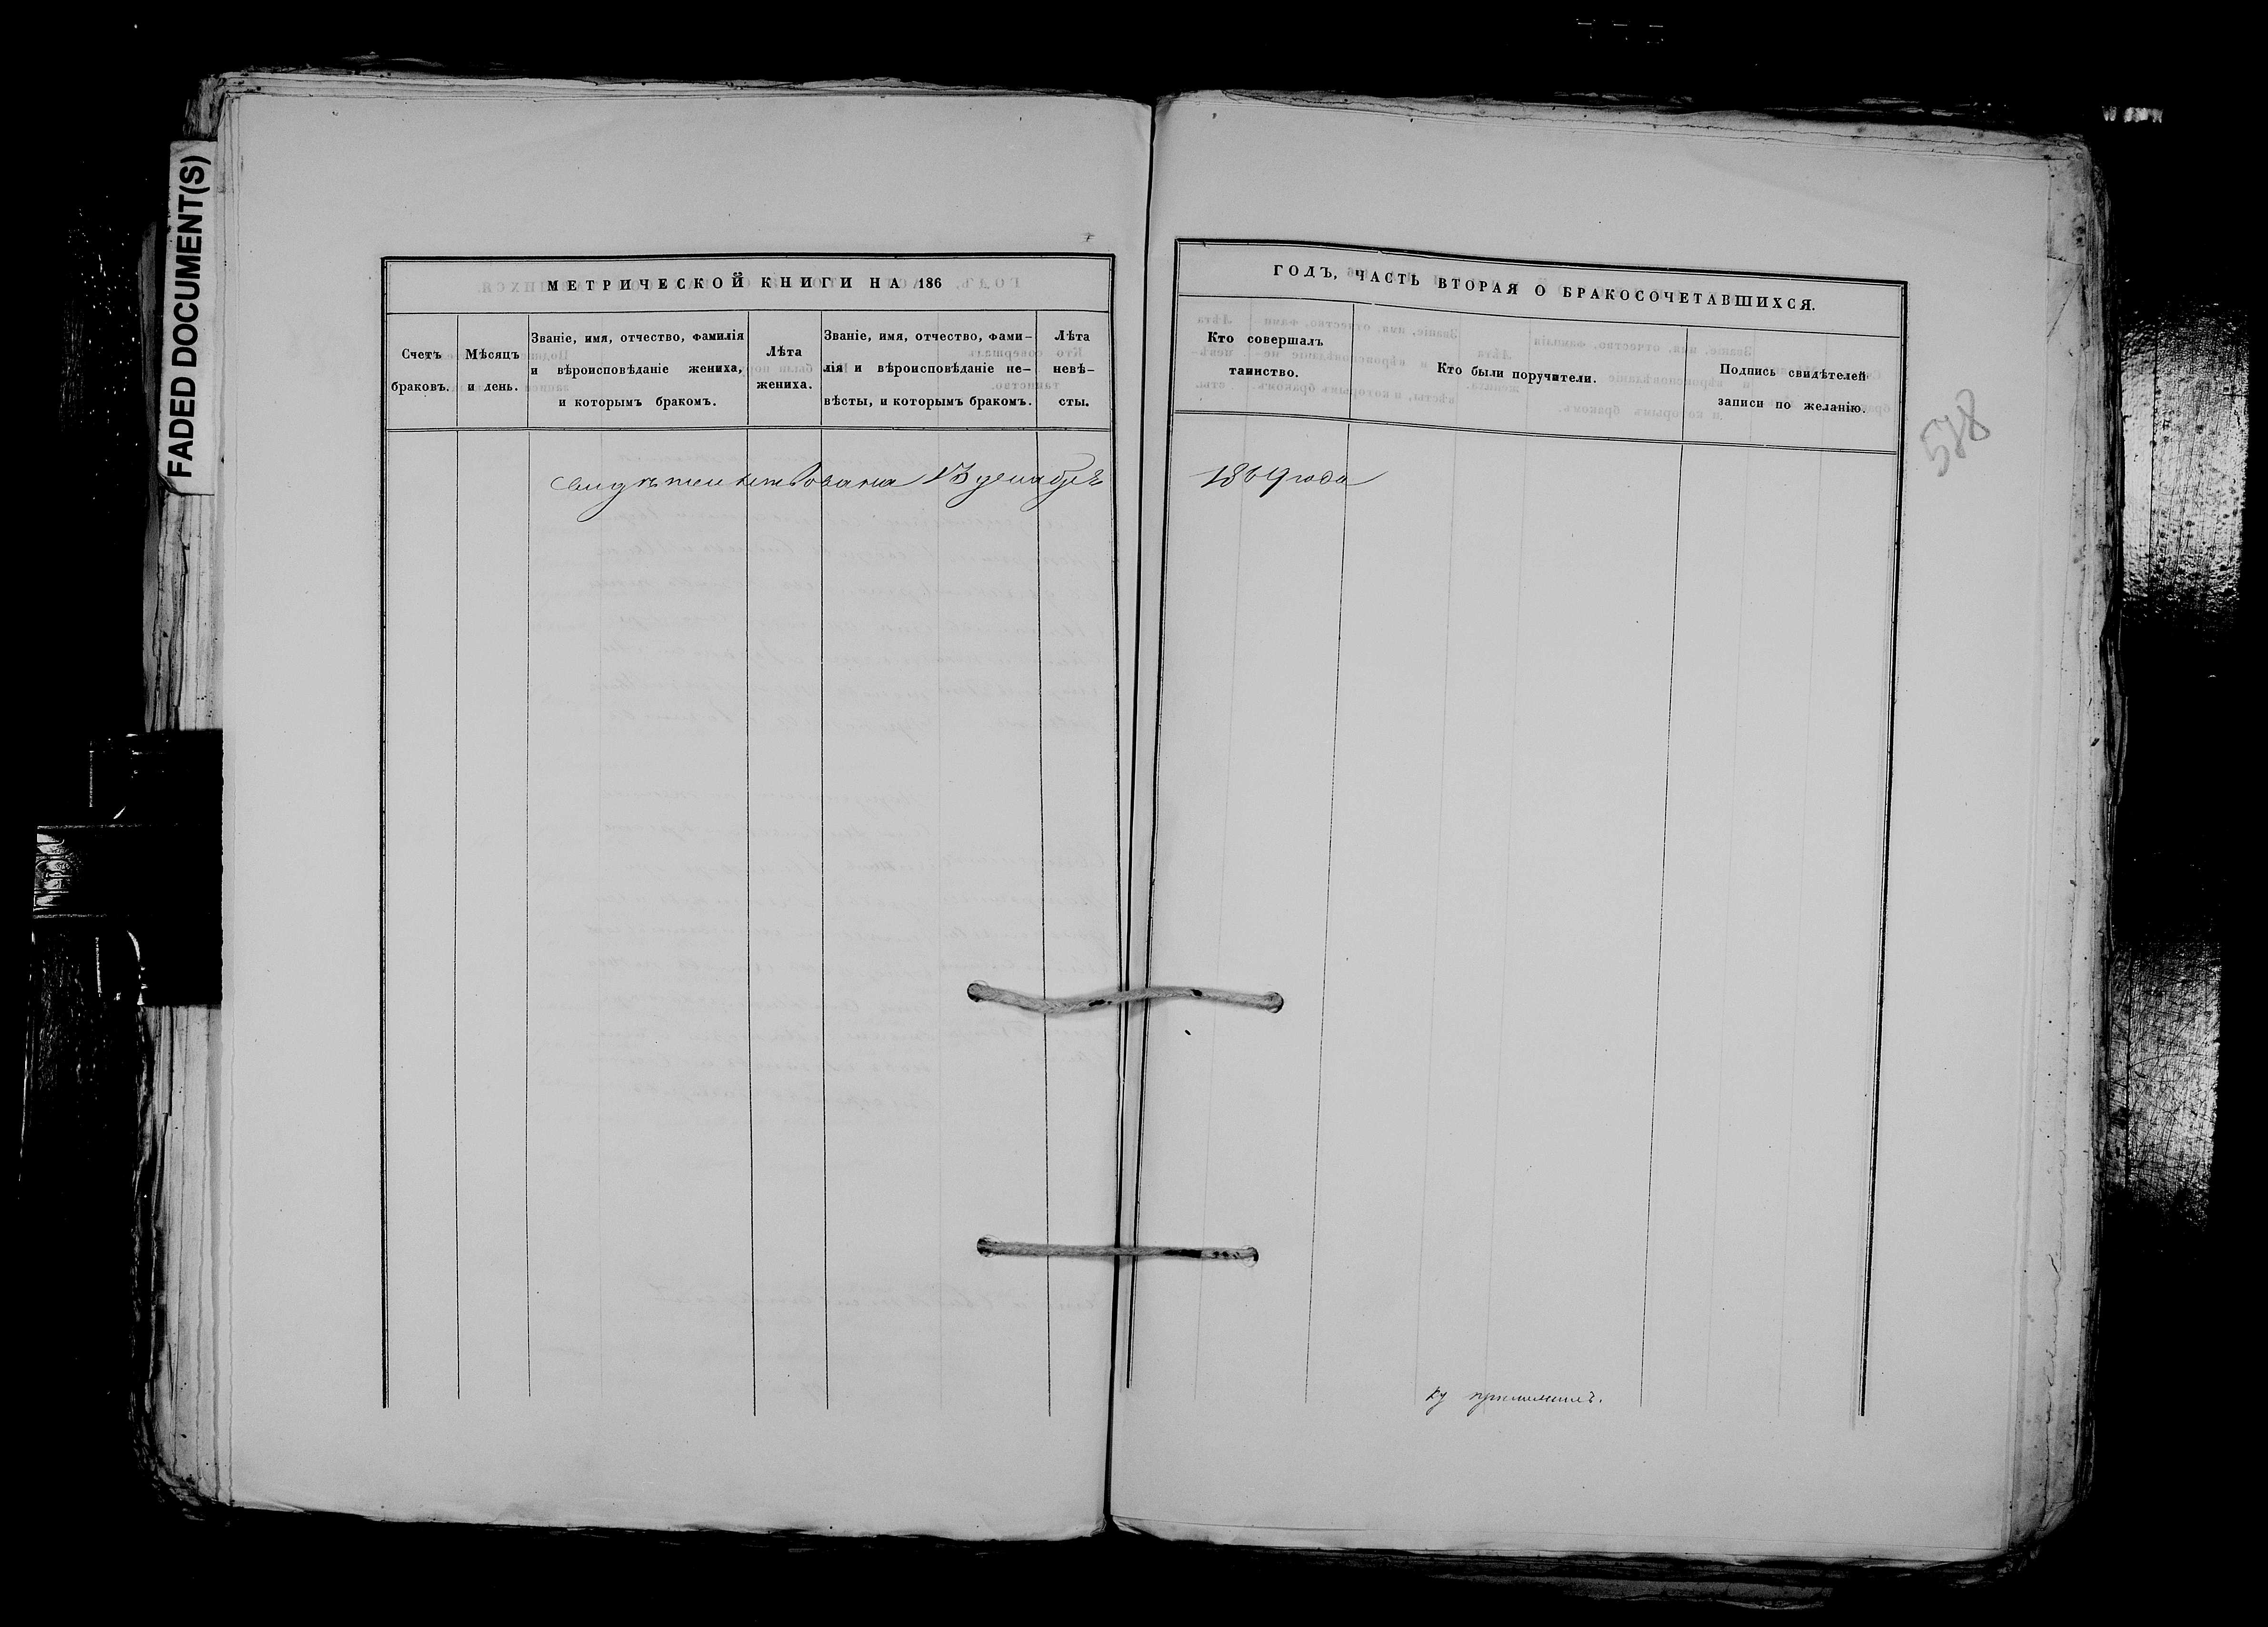 FADED DOCUMENT(S)
МЕТРИЧЕСКОЙ КНИГИ НА 186
Счетъ браковъ.
Мѣсяцъ и день.
Званіе, имя, отчество, фамилія
и вѣроисповѣданіе жениха,
и которымъ бракомъ.
Лѣта
жениха.
Званіе, имя, отчество, фами-
лія и вѣроисповѣданіе не-
вѣсты, и которымъ бракомъ.
Лѣта
невѣ-
сты.
Свидѣтельствована 13 декабрѣ
ГОДЪ, ЧАСТЬ ВТОРАЯ О БРАКОСОЧЕТАВШИХСЯ.
Кто совершалъ
таинство.
Кто были поручители.
Подпись свидѣтелей
записи по желанію.
1869 года